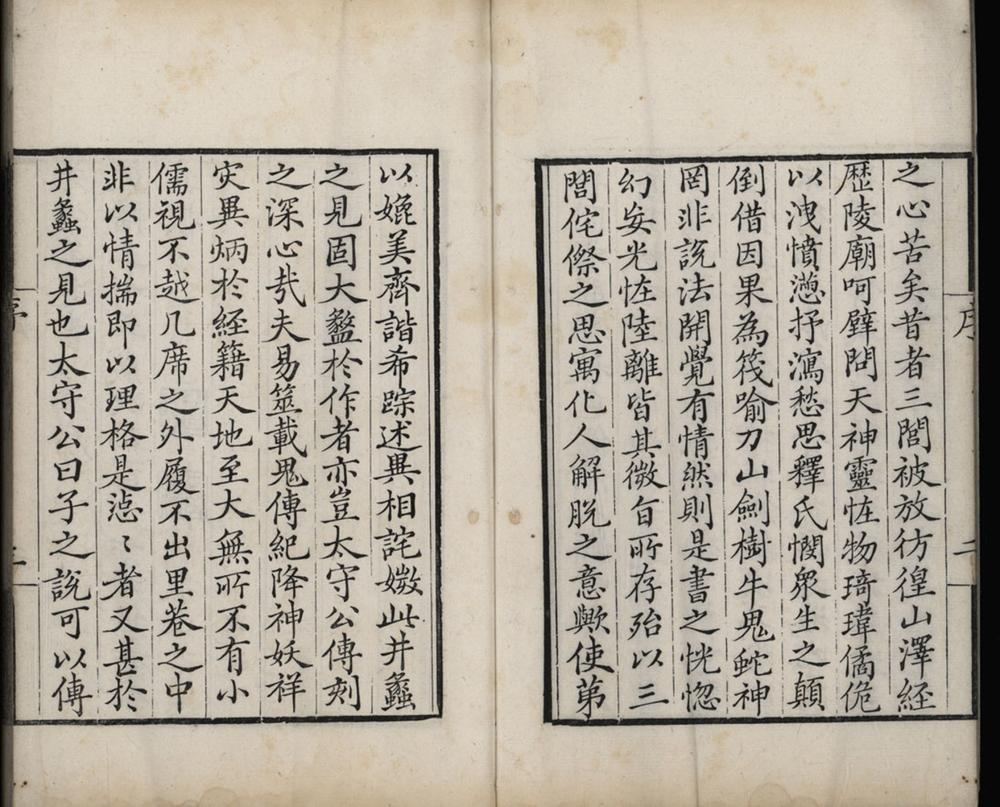 序
二
之心苦矣昔者三閭被放彷徨山澤經
歷陵廟呵壁問天神靈恠物琦瑋僪佹
以洩憤懣抒瀉愁思釋氏憫衆生之顛
倒借因果為筏喻刀山劍樹牛鬼蛇神
罔非說法開覺有情然則是書之恍惚
幻妄光恠陸離皆其微旨所存殆以三
閭侘傺之思寓化人解脫之意歟使第
以媲美齊諧希踪述異相詫媺此井蠡
之見固大盭於作者亦豈太守公傳刻
之深心哉夫易筮載鬼傳紀降神妖祥
灾異炳於經籍天地至大無所不有小
儒視不越几席之外履不出里巷之中
非以情揣即以理格是惉〻者又甚於
井蠡之見也太守公曰子之說可以傳
序